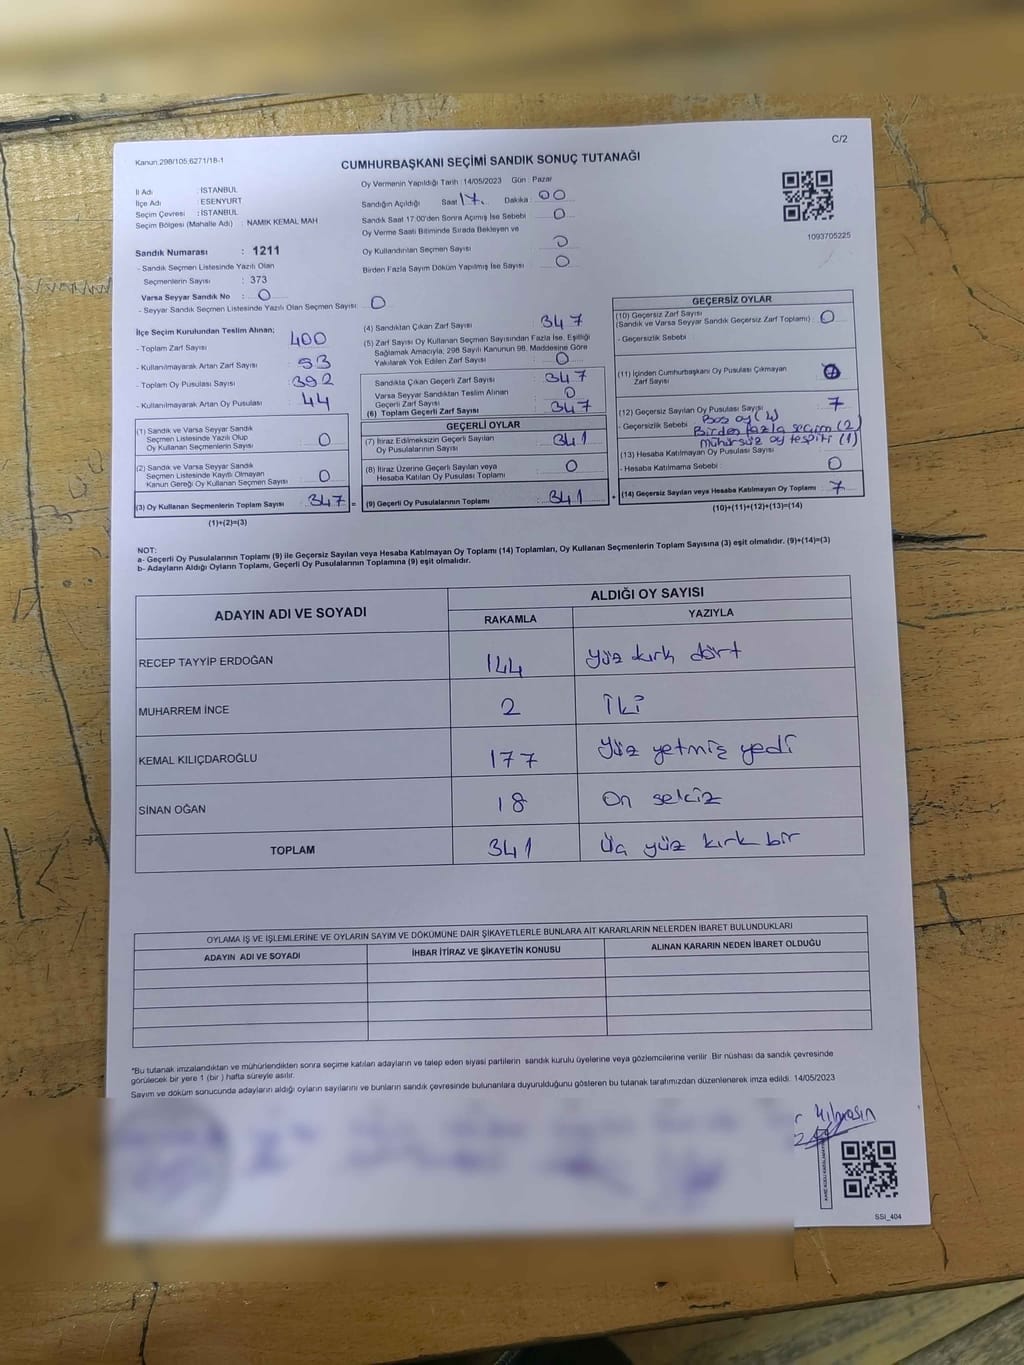 C/2
Kanun,298/105,6271/18-1
CUMHURBAŞKANI SEÇİMİ SANDIK SONUÇ TUTANAĞI
İl Adı : İSTANBUL
İlçe Adı : ESENYURT
Seçim Çevresi : İSTANBUL
Seçim Bölgesi (Mahalle Adı) : NAMIK KEMAL MAH
Sandık Numarası : 1211
- Sandık Seçmen Listesinde Yazılı Olan
Seçmenlerin Sayısı : 373
Varsa Seyyar Sandık No : 0
- Seyyar Sandık Seçmen Listesinde Yazılı Olan Seçmen Sayısı: 0
Oy Vermenin Yapıldığı Tarih : 14/05/2023 Gün : Pazar
Sandığın Açıldığı Saat 17. Dakika : 00
Sandık Saat 17:00'den Sonra Açılmış İse Sebebi 0
Oy Verme Saati Bitiminde Sırada Bekleyen ve
Oy Kullandırılan Seçmen Sayısı 0
Birden Fazla Sayım Döküm Yapılmış İse Sayısı 0
1093705225
İlçe Seçim Kurulundan Teslim Alınan;
- Toplam Zarf Sayısı 400
- Kullanılmayarak Artan Zarf Sayısı 53
- Toplam Oy Pusulası Sayısı 392
- Kullanılmayarak Artan Oy Pusulası 44
(1) Sandık ve Varsa Seyyar Sandık
Seçmen Listesinde Yazılı Olup
Oy Kullanan Seçmenlerin Sayısı 0
(2) Sandık ve Varsa Seyyar Sandık
Seçmen Listesinde Kayıtlı Olmayan
Kanun Gereği Oy Kullanan Seçmen Sayısı 0
(3) Oy Kullanan Seçmenlerin Toplam Sayısı 347 =
(1)+(2)=(3)
(4) Sandıktan Çıkan Zarf Sayısı 347
(5) Zarf Sayısı Oy Kullanan Seçmen Sayısından Fazla İse, Eşitliği
Sağlamak Amacıyla, 298 Sayılı Kanunun 98. Maddesine Göre
Yakılarak Yok Edilen Zarf Sayısı 0
Sandıkta Çıkan Geçerli Zarf Sayısı 347
Varsa Seyyar Sandıktan Teslim Alınan
Geçerli Zarf Sayısı 0
(6) Toplam Geçerli Zarf Sayısı 347
GEÇERLİ OYLAR
(7) İtiraz Edilmeksizin Geçerli Sayılan
Oy Pusulalarının Sayısı 341
(8) İtiraz Üzerine Geçerli Sayılan veya
Hesaba Katılan Oy Pusulası Toplamı 0
(9) Geçerli Oy Pusulalarının Toplamı 341 +
GEÇERSİZ OYLAR
(10) Geçersiz Zarf Sayısı
(Sandık ve Varsa Seyyar Sandık Geçersiz Zarf Toplamı) : 0
- Geçersizlik Sebebi
(11) İçinden Cumhurbaşkanı Oy Pusulası Çıkmayan
Zarf Sayısı
(12) Geçersiz Sayılan Oy Pusulası Sayısı 7
- Geçersizlik Sebebi : Boş oy (4)
Birden fazla seçim (2)
Mühürsüz oy tespiti (1)
(13) Hesaba Katılmayan Oy Pusulası Sayısı
- Hesaba Katılmama Sebebi : 0
(14) Geçersiz Sayılan veya Hesaba Katılmayan Oy Toplamı 7
(10)+(11)+(12)+(13)=(14)
NOT:
a- Geçerli Oy Pusulalarının Toplamı (9) ile Geçersiz Sayılan veya Hesaba Katılmayan Oy Toplamı (14) Toplamları, Oy Kullanan Seçmenlerin Toplam Sayısına (3) eşit olmalıdır. (9)+(14)=(3)
b- Adayların Aldığı Oyların Toplamı, Geçerli Oy Pusulalarının Toplamına (9) eşit olmalıdır.
ADAYIN ADI VE SOYADI ALDIĞI OY SAYISI
RAKAMLA YAZIYLA
RECEP TAYYİP ERDOĞAN 144 Yüz kırk dört
MUHARREM İNCE 2 İki
KEMAL KILIÇDAROĞLU 177 Yüz yetmiş yedi
SİNAN OĞAN 18 On sekiz
TOPLAM 341 Üç yüz kırk bir
OYLAMA İŞ VE İŞLEMLERİNE VE OYLARIN SAYIM VE DÖKÜMÜNE DAİR ŞİKAYETLERLE BUNLARA AİT KARARLARIN NELERDEN İBARET BULUNDUKLARI
ADAYIN ADI VE SOYADI İHBAR İTİRAZ VE ŞİKAYETİN KONUSU ALINAN KARARIN NEDEN İBARET OLDUĞU
*Bu tutanak imzalandıktan ve mühürlendikten sonra seçime katılan adayların ve talep eden siyasi partilerin sandık kurulu üyelerine veya gözlemcilerine verilir. Bir nüshası da sandık çevresinde
görülecek bir yere 1 (bir ) hafta süreyle asılır.
Sayım ve döküm sonucunda adayların aldığı oyların sayılarını ve bunların sandık çevresinde bulunanlara duyurulduğunu gösteren bu tutanak tarafımızdan düzenlenerek imza edildi. 14/05/2023
SSI_404